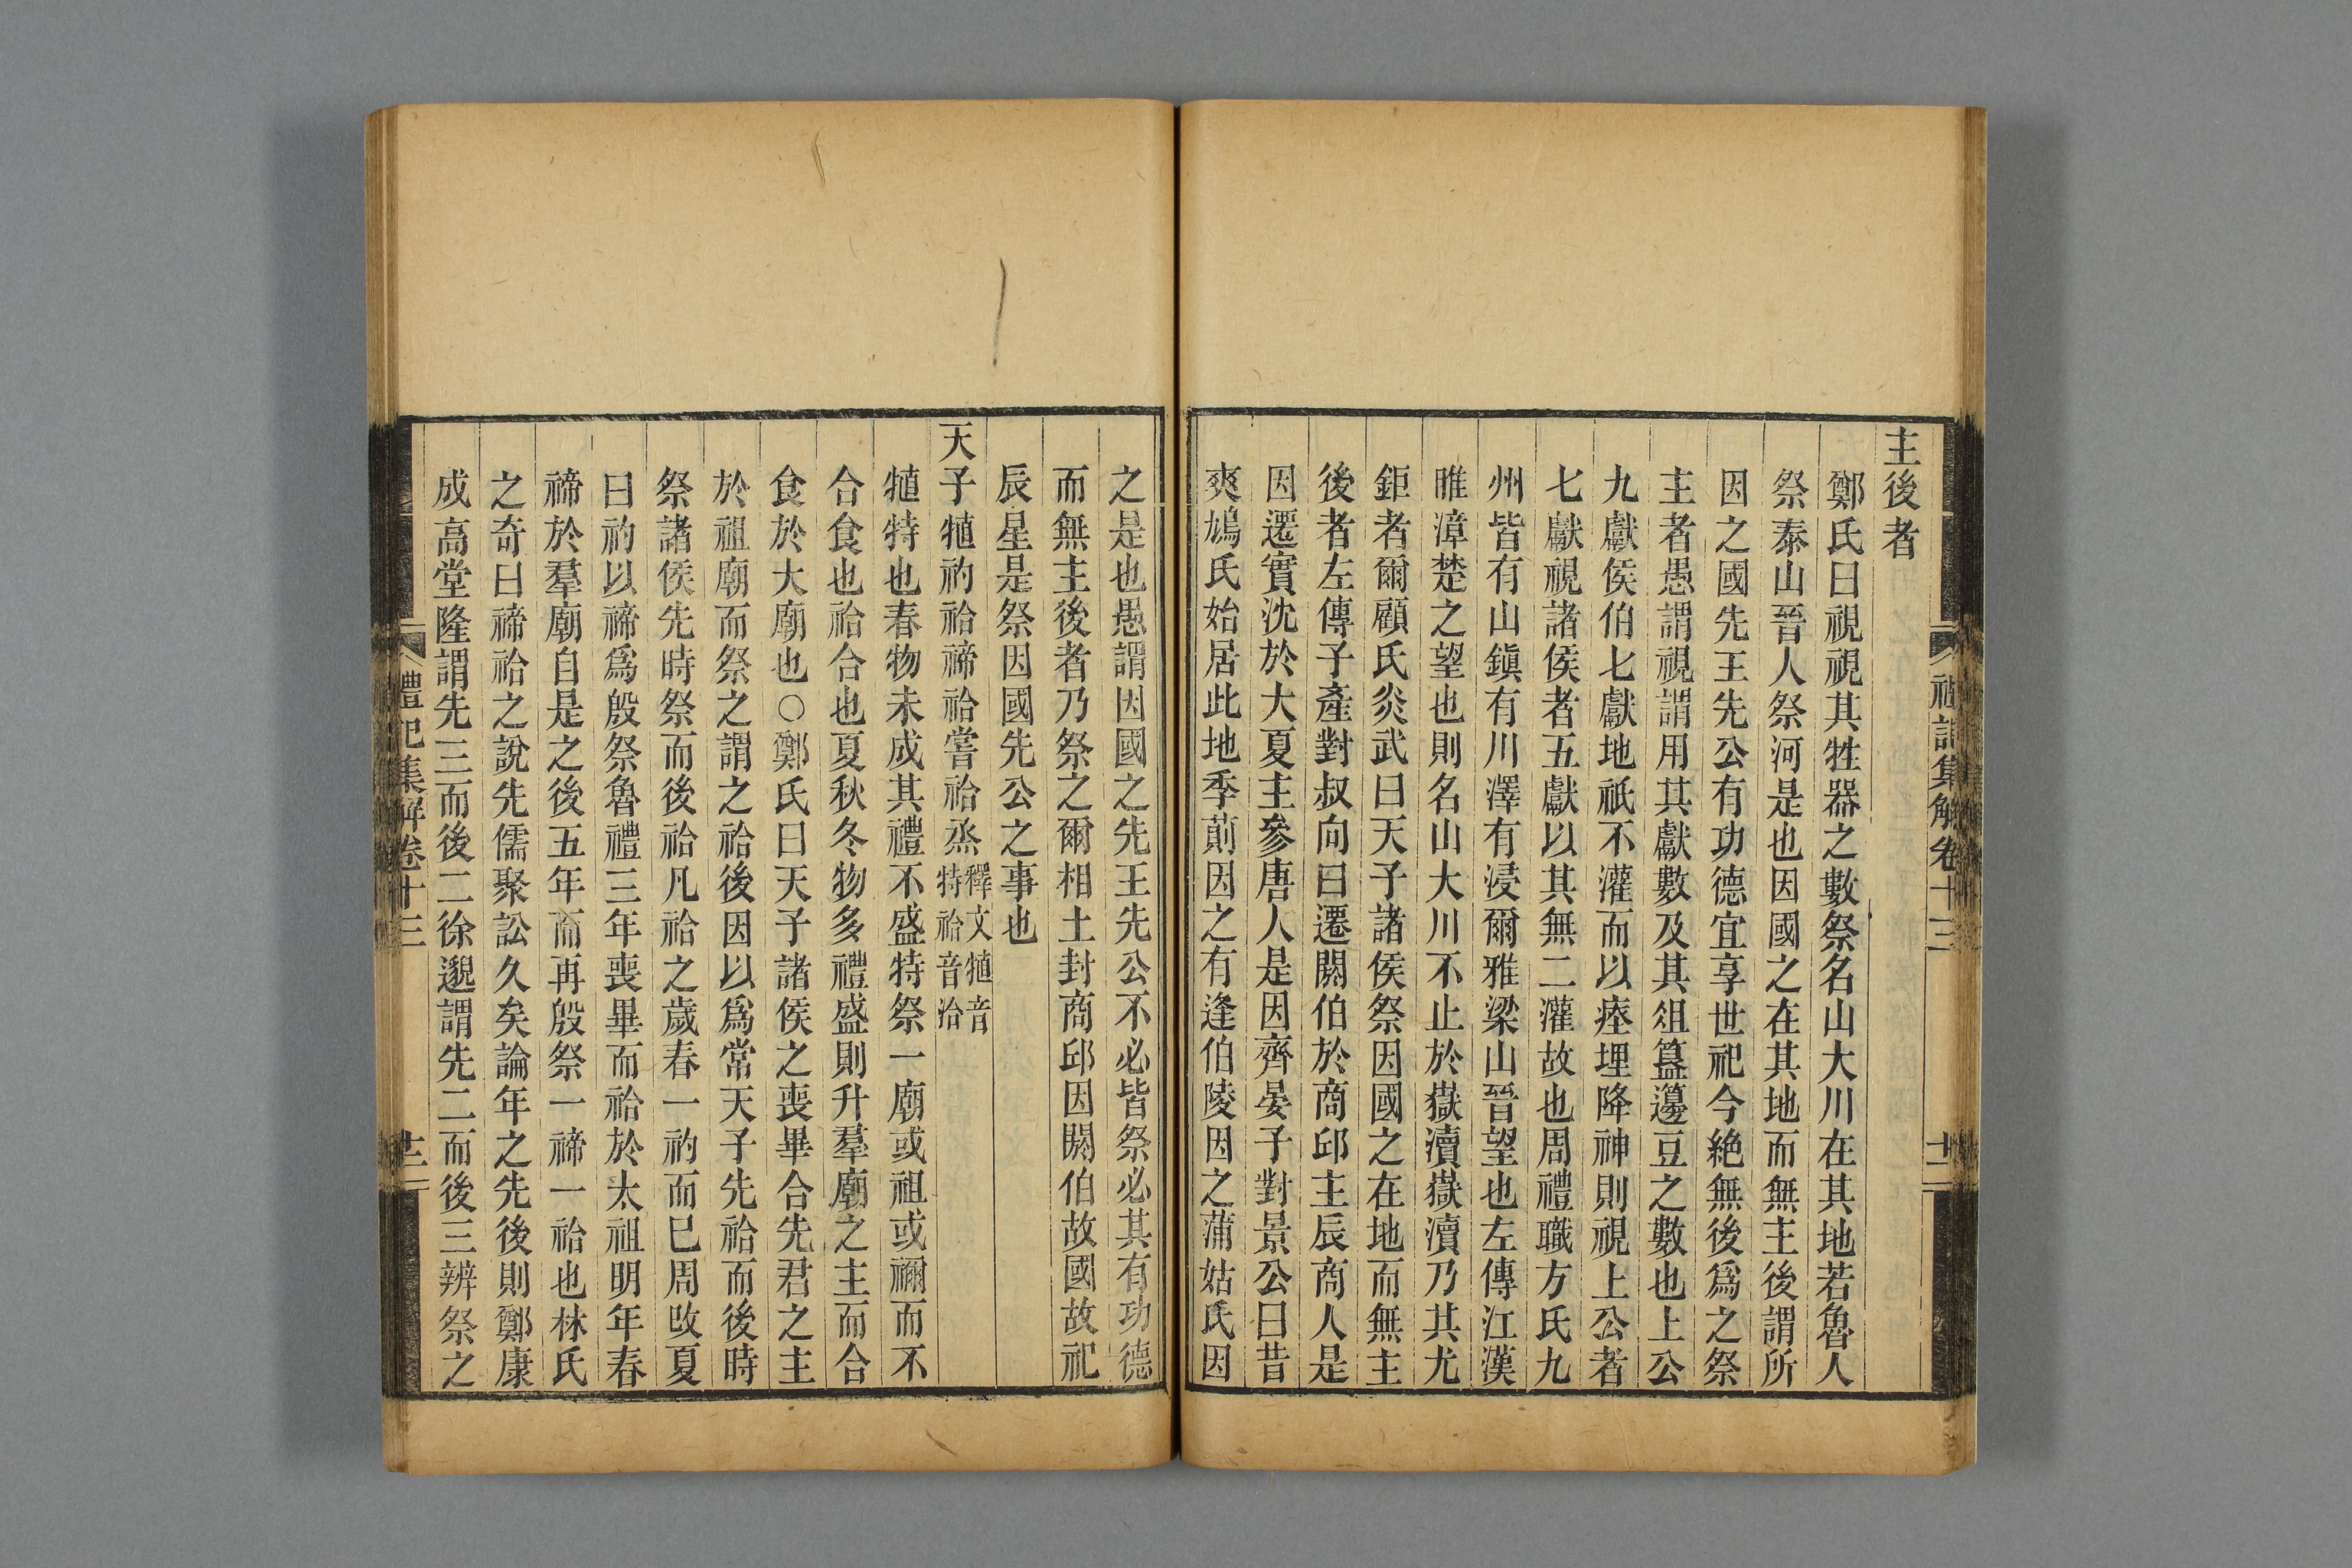 禮記集解卷十三
十二
主後者
鄭氏曰視視其牲器之數祭名山大川在其地若魯人
祭泰山晉人祭河是也因國之在其地而無主後謂所
因之國先王先公有功德宜享世祀今絶無後爲之祭
主者愚謂視謂用其獻數及其俎簋籩豆之數也上公
九獻侯伯七獻地祇不灌而以瘞埋降神則視上公者
七獻視諸侯者五獻以其無二灌故也周禮職方氏九
州皆有山鎭有川澤有浸爾雅梁山晉望也左傳江漢
睢漳楚之望也則名山大川不止於嶽瀆嶽瀆乃其尤
鉅者爾顧氏炎武曰天子諸侯祭因國之在地而無主
後者左傳子產對叔向曰遷閼伯於商邱主辰商人是
因遷實沈於大夏主參唐人是因齊晏子對景公曰昔
爽鳩氏始居此地季萴因之有逢伯陵因之蒲姑氏因
之是也愚謂因國之先王先公不必皆祭必其有功德
而無主後者乃祭之爾相土封商邱因閼伯故國故祀
辰星是祭因國先公之事也
天子犆礿祫禘祫嘗祫烝釋文犆音特祫音洽
犆特也春物未成其禮不盛特祭一廟或祖或禰而不
合食也祫合也夏秋冬物多禮盛則升羣廟之主而合
食於大廟也○鄭氏曰天子諸侯之喪畢合先君之主
於祖廟而祭之謂之祫後因以爲常天子先祫而後時
祭諸侯先時祭而後祫凡祫之歲春一礿而已周改夏
曰礿以禘爲殷祭魯禮三年喪畢而祫於太祖明年春
禘於羣廟自是之後五年而再殷祭一禘一祫也林氏
之奇曰禘祫之說先儒聚訟久矣論年之先後則鄭康
成高堂隆謂先三而後二徐邈謂先二而後三辨祭之
禮記集解卷十三